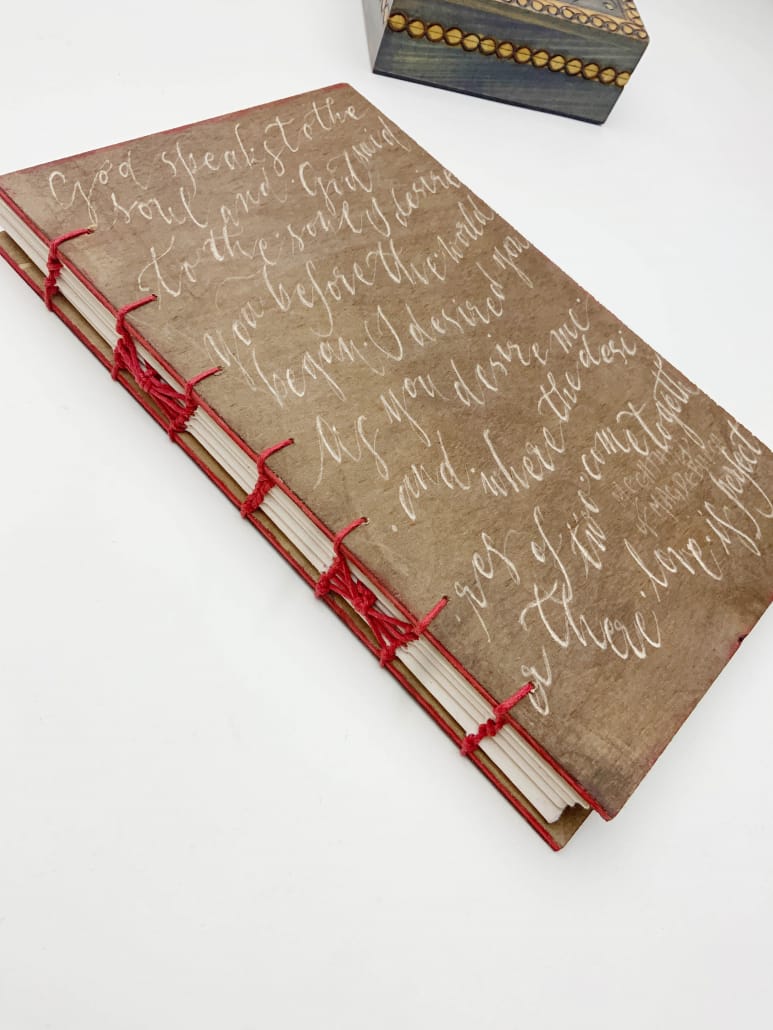 God speaks to the
soul and God said
to the soul I desired
you before the world
began. I desired you
As you desire me.
.and.where the desi
.res of two come togeth
er there love is perfect
MECHTHILD
of MAGDEBURG